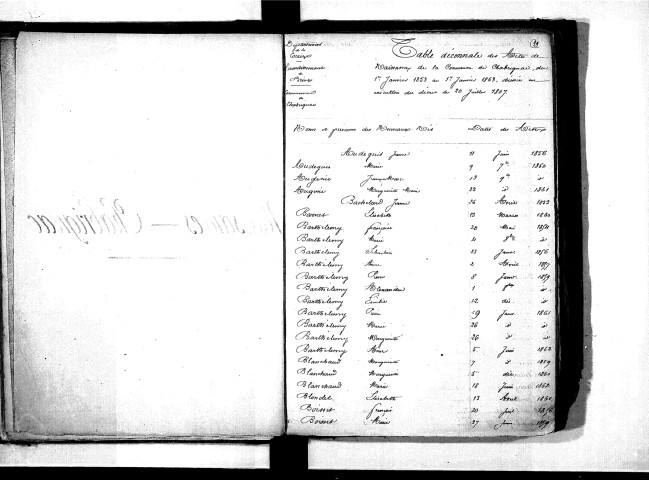 Département
de la
Corrèze
Arrondissement
de
Brive
Commune
de
Chabrignac
Table décennale des Actes de
Naissance de la Commune de Chabrignac, du
1er Janvier 1853 au 1er Janvier 1863, dressée en
exécution du décret du 20 Juillet 1807.
Noms et prénoms des Nouveaux Nés Dates des Actes
Audeguis Jeanne 11 Juin 1856
Audeguis Marie 9 7bre 1860
Marie 13 9bre id
Marguerite Marie 22 id 1861
Bachelard Jeanne 26 Avril 1853
Barret Elisabeth 13 Mars 1860
Barthelemy françoise 20 Mai
Barthelemy Marie 4 8bre id
Barthelemy Sébastien 13 Janv 1856
Barthelemy 2 Avril 1857
Barthelemy 8 Janv 1859
Barthelemy Alexandre 1 8bre id
Barthelemy Emilie 12 déc id
Barthelemy 19 Janv 1861
Barthelemy Marie 26 id id
Barthelemy Marguerite 26 id id
Barthelemy 5 Juin 1862
Blanchaud Marguerite 7 id 1859
Blanchaud Marguerite 5 déc 1860
Blanchaud Marie 18 Juin 1862
Blondel Elisabeth 13 Août 1861
Boisset françois 20 Juil 1856
Boisset Marie 27 Juin 1859
Naissances — Chabrignac